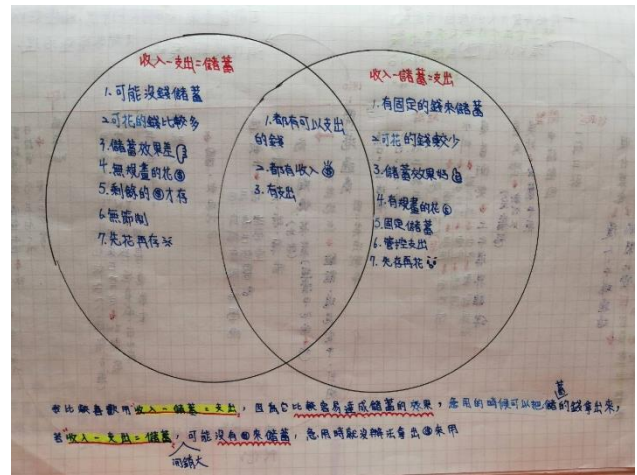 收入-支出=儲蓄
1.可能沒錢儲蓄
2.可花的錢比較多
3.儲蓄效果差
4.無規畫的花$
5.剩餘的$才存
6.無節制
7.先花再存
1.都有可以支出
的錢
2.都有收入$
3.有支出
收入-儲蓄=支出
1.有固定的錢來儲蓄
2.可花的錢較少
3.儲蓄效果好
4.有規畫的花$
5.固定儲蓄
6.管控支出
7.先存再花
我比較喜歡用收入-儲蓄=支出,因為它比較容易達成儲蓄的效果,急用的時候可以把儲蓄的錢拿出來,
若收入-支出=儲蓄,可能沒有$來儲蓄,急用時就沒辦法拿出$來用
開銷大